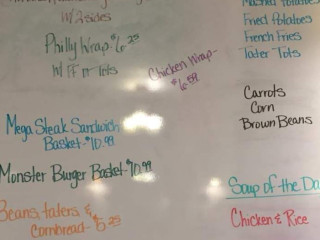 w/ 2 sides
Philly Wrap - $6.25
w/ FF or Tots
Chicken Wrap -
$6.59
Mega Steak Sandwich
Basket - $10.99
Monster Burger Basket - $10.99
Beans, taters &
Cornbread - $5.25
Mashed Potatoes
Fried Potatoes
French Fries
Tader Tots
Carrots
Corn
Brown Beans
Soup of the Da
Chicken & Rice